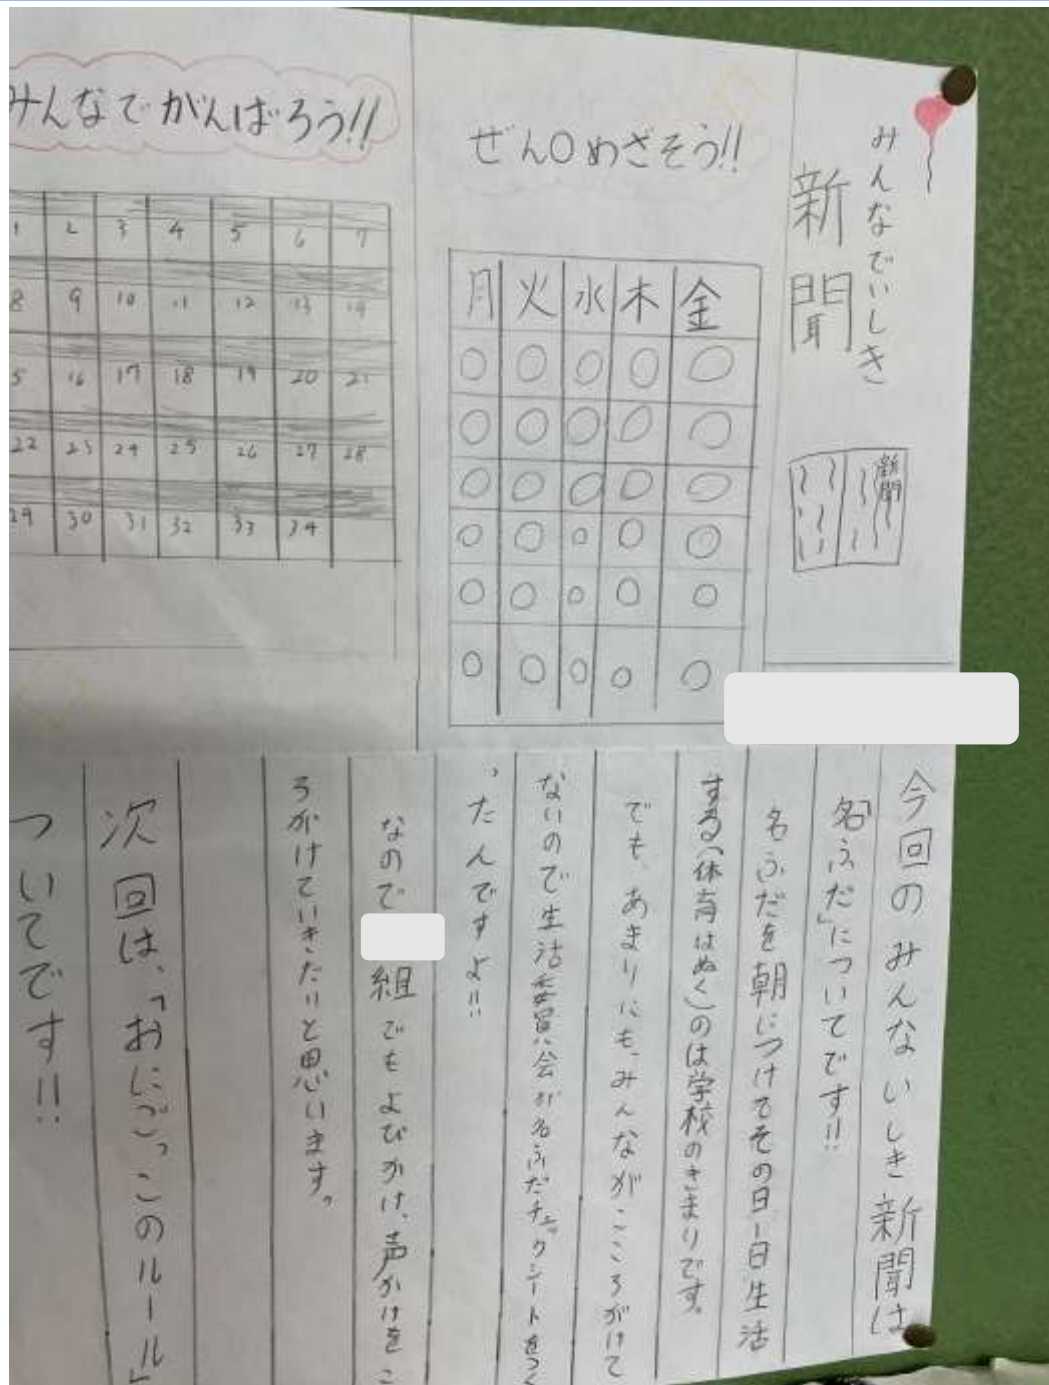 みんなでいしき
新聞
新聞
ぜん○めざそう!!
月 火 水 木 金
○ ○ ○ ○ ○
○ ○ ○ ○ ○
○ ○ ○ ○ ○
○ ○ ○ ○ ○
○ ○ ○ ○ ○
○ ○ ○ ○ ○
みんなでがんばろう!!
1 2 3 4 5 6 7
8 9 10 11 12 13 14
5 16 17 18 19 20 21
22 23 24 25 26 27 28
29 30 31 32 33 34
今回のみんないしき新聞は
「名ふだ」についてです!!
名ふだを朝につけてその日1日生活
する(体育はぬく)のは学校のきまりです。
でも、あまりにも、みんながこころがけて
ないので生活委員会が名ふだチェックシートをつく
ったんですよ!!
なので 組でもよびかけ、声かけをこ
ろがけていきたいと思います。
次回は、「おにごっこのルール」
ついてです!!